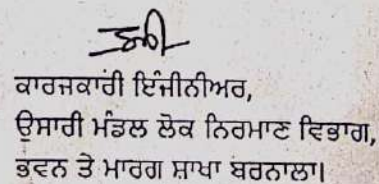 ਕਾਰਜਕਾਰੀ ਇੰਜੀਨੀਅਰ,
ਉਸਾਰੀ ਮੰਡਲ ਲੋਕ ਨਿਰਮਾਣ ਵਿਭਾਗ,
ਭਵਨ ਤੇ ਮਾਰਗ ਸ਼ਾਖਾ ਬਰਨਾਲਾ।